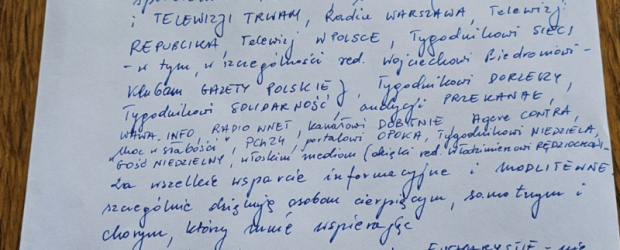 i TELEWIZJI TRWAM, Radiu WARSZAWA, Telewizji
REPUBLIKA, Telewizji WPOLSCE, Tygodnikowi SIECI
- w tym, w szczególności red. Wojciechowi Biedroniowi -
Klubom GAZETY POLSKIEJ, Tygodnikowi DORZECZY,
Tygodnikowi SOLIDARNOŚĆ, audycji PRZEKANAŁ,
WAWA.INFO, RADIO WNET, kanałowi DOBITNIE, Agere CONTRA,
"Moc w słabości", PCH24, portalowi OPOKA, Tygodnikowi NIEDZIELA,
GOŚĆ NIEDZIELNY, włoskim mediom (dzięki red. Włodzimierzowi RĘDZIOCHOWI)
za wszelkie wsparcie informacyjne i MODLITEWNE.
szczególnie dziękuję osobom cierpiącym, samotnym i
chorym, którzy mnie wspierając
EUCHARYSTIĘ - nie